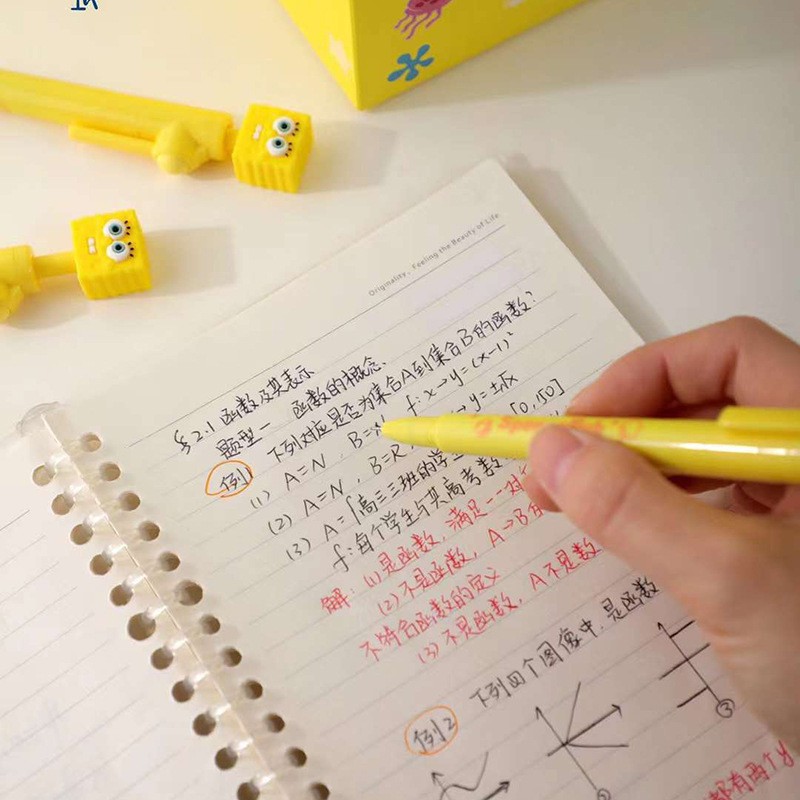 Originality, Feeling the Beauty of Life
§2.1 函数及其表示
题型一 函数的概念、
例1 下列对应是否为集合A到集合B的函数?
(1) A=N, B= f:x→y=(x-1)²
(2) A=N, B=R, →y=±√x
(3) A={高三三班的学 [0,150]
f:每个学生与其高考数
解:(1)是函数,满足一一对
(2)不是函数,A→B
不符合函数的定义
(3)不是函数,A不是数
例2 下列四个图像中,是函数
③
都有两个y